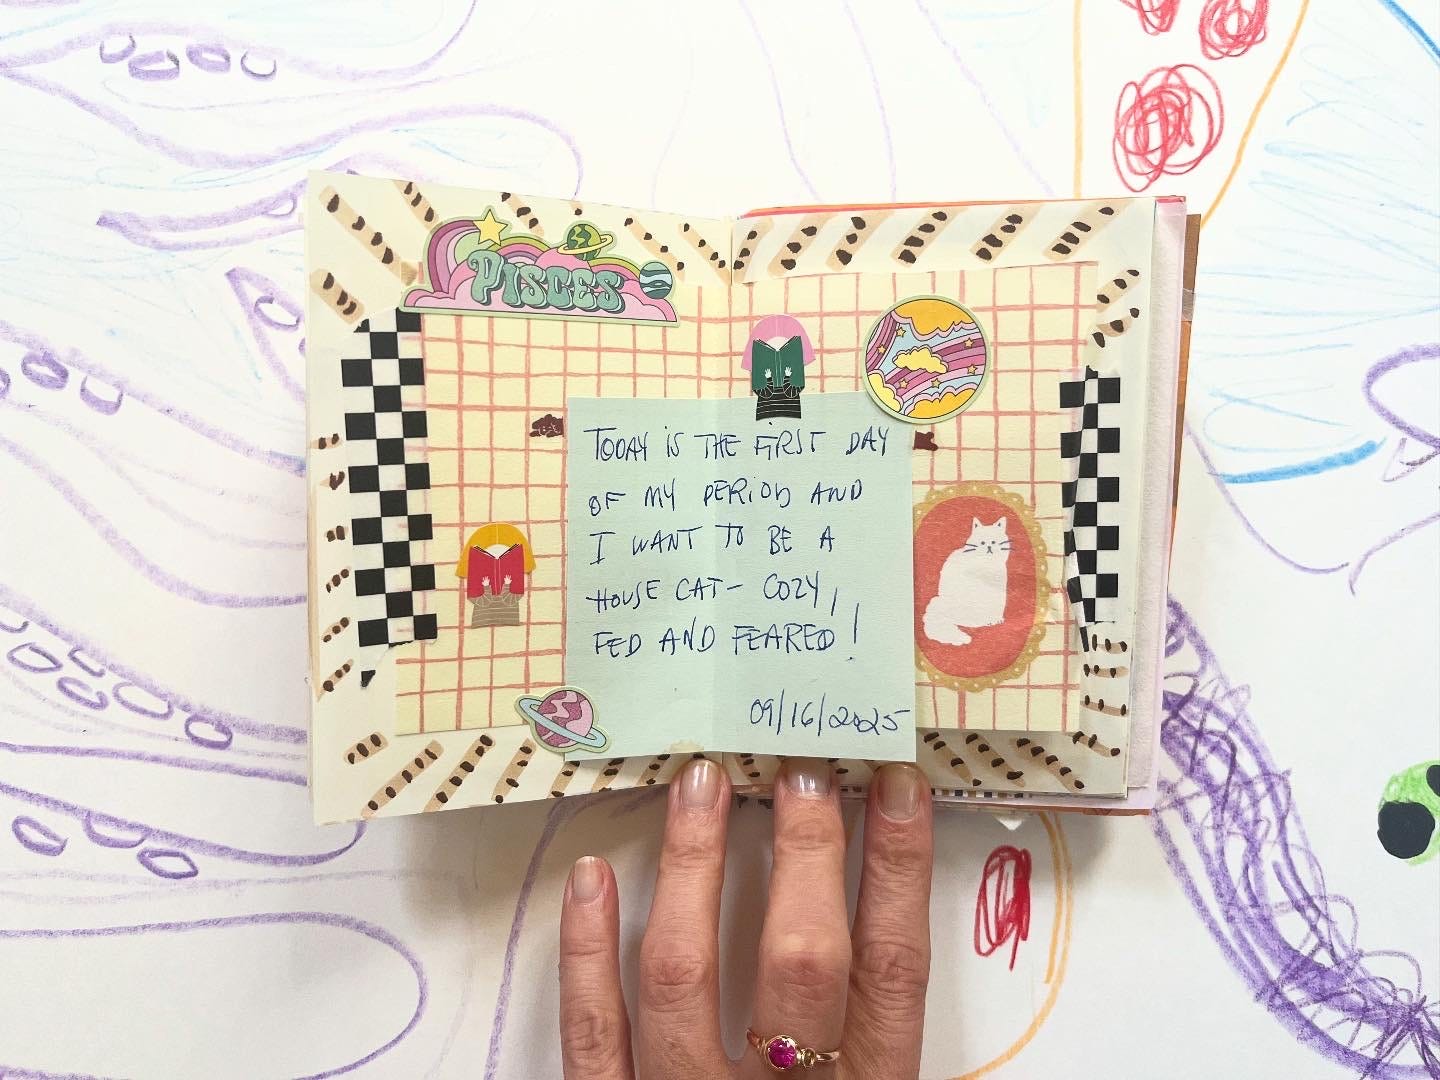 PISCES
TODAY IS THE FIRST DAY
OF MY PERIOD AND
I WANT TO BE A
HOUSE CAT - COZY,
FED AND FEARED!
09/16/2025